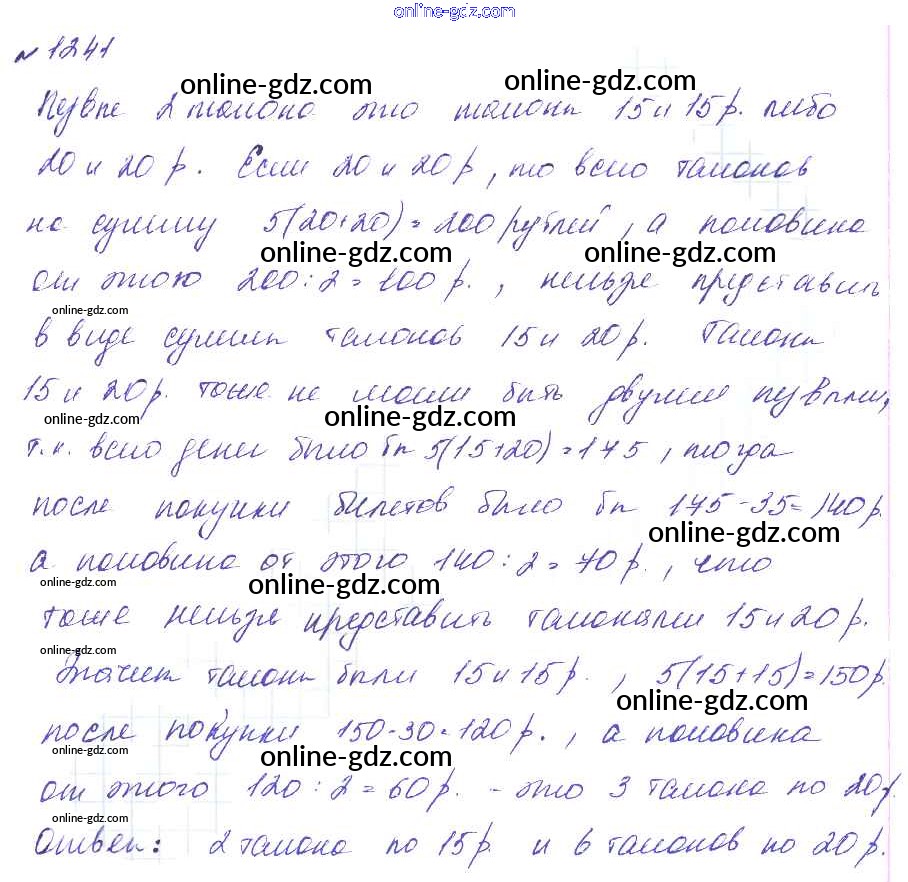 online-gdz.com
№ 1241
online-gdz.com online-gdz.com
Первые 2 талона это талоны 15 и 15 р. либо
20 и 20 р. Если 20 и 20 р, то всего талонов
на сумму 5(20+20)=200 рублей, а половина
online-gdz.com online-gdz.com
от этого 200:2=100 р., нельзя представить
online-gdz.com
в виде суммы талонов 15 и 20 р. Талоны
15 и 20 р. тоже не могли быть двумя первыми,
online-gdz.com online-gdz.com
т.к. всего денег было бы 5(15+20)=175, тогда
после покупки билетов было бы 175-35=140 р.
online-gdz.com
а половина от этого 140:2=70 р., что
online-gdz.com
тоже нельзя представить талонами 15 и 20 р.
online-gdz.com
Значит талоны были 15 и 15 р., 5(15+15)=150 р.
online-gdz.com
после покупки 150-30=120 р., а половина
online-gdz.com online-gdz.com
от этого 120:2=60 р. - это 3 талона по 20 р.
Ответ: 2 талона по 15 р и 6 талонов по 20 р.
online-gdz.com